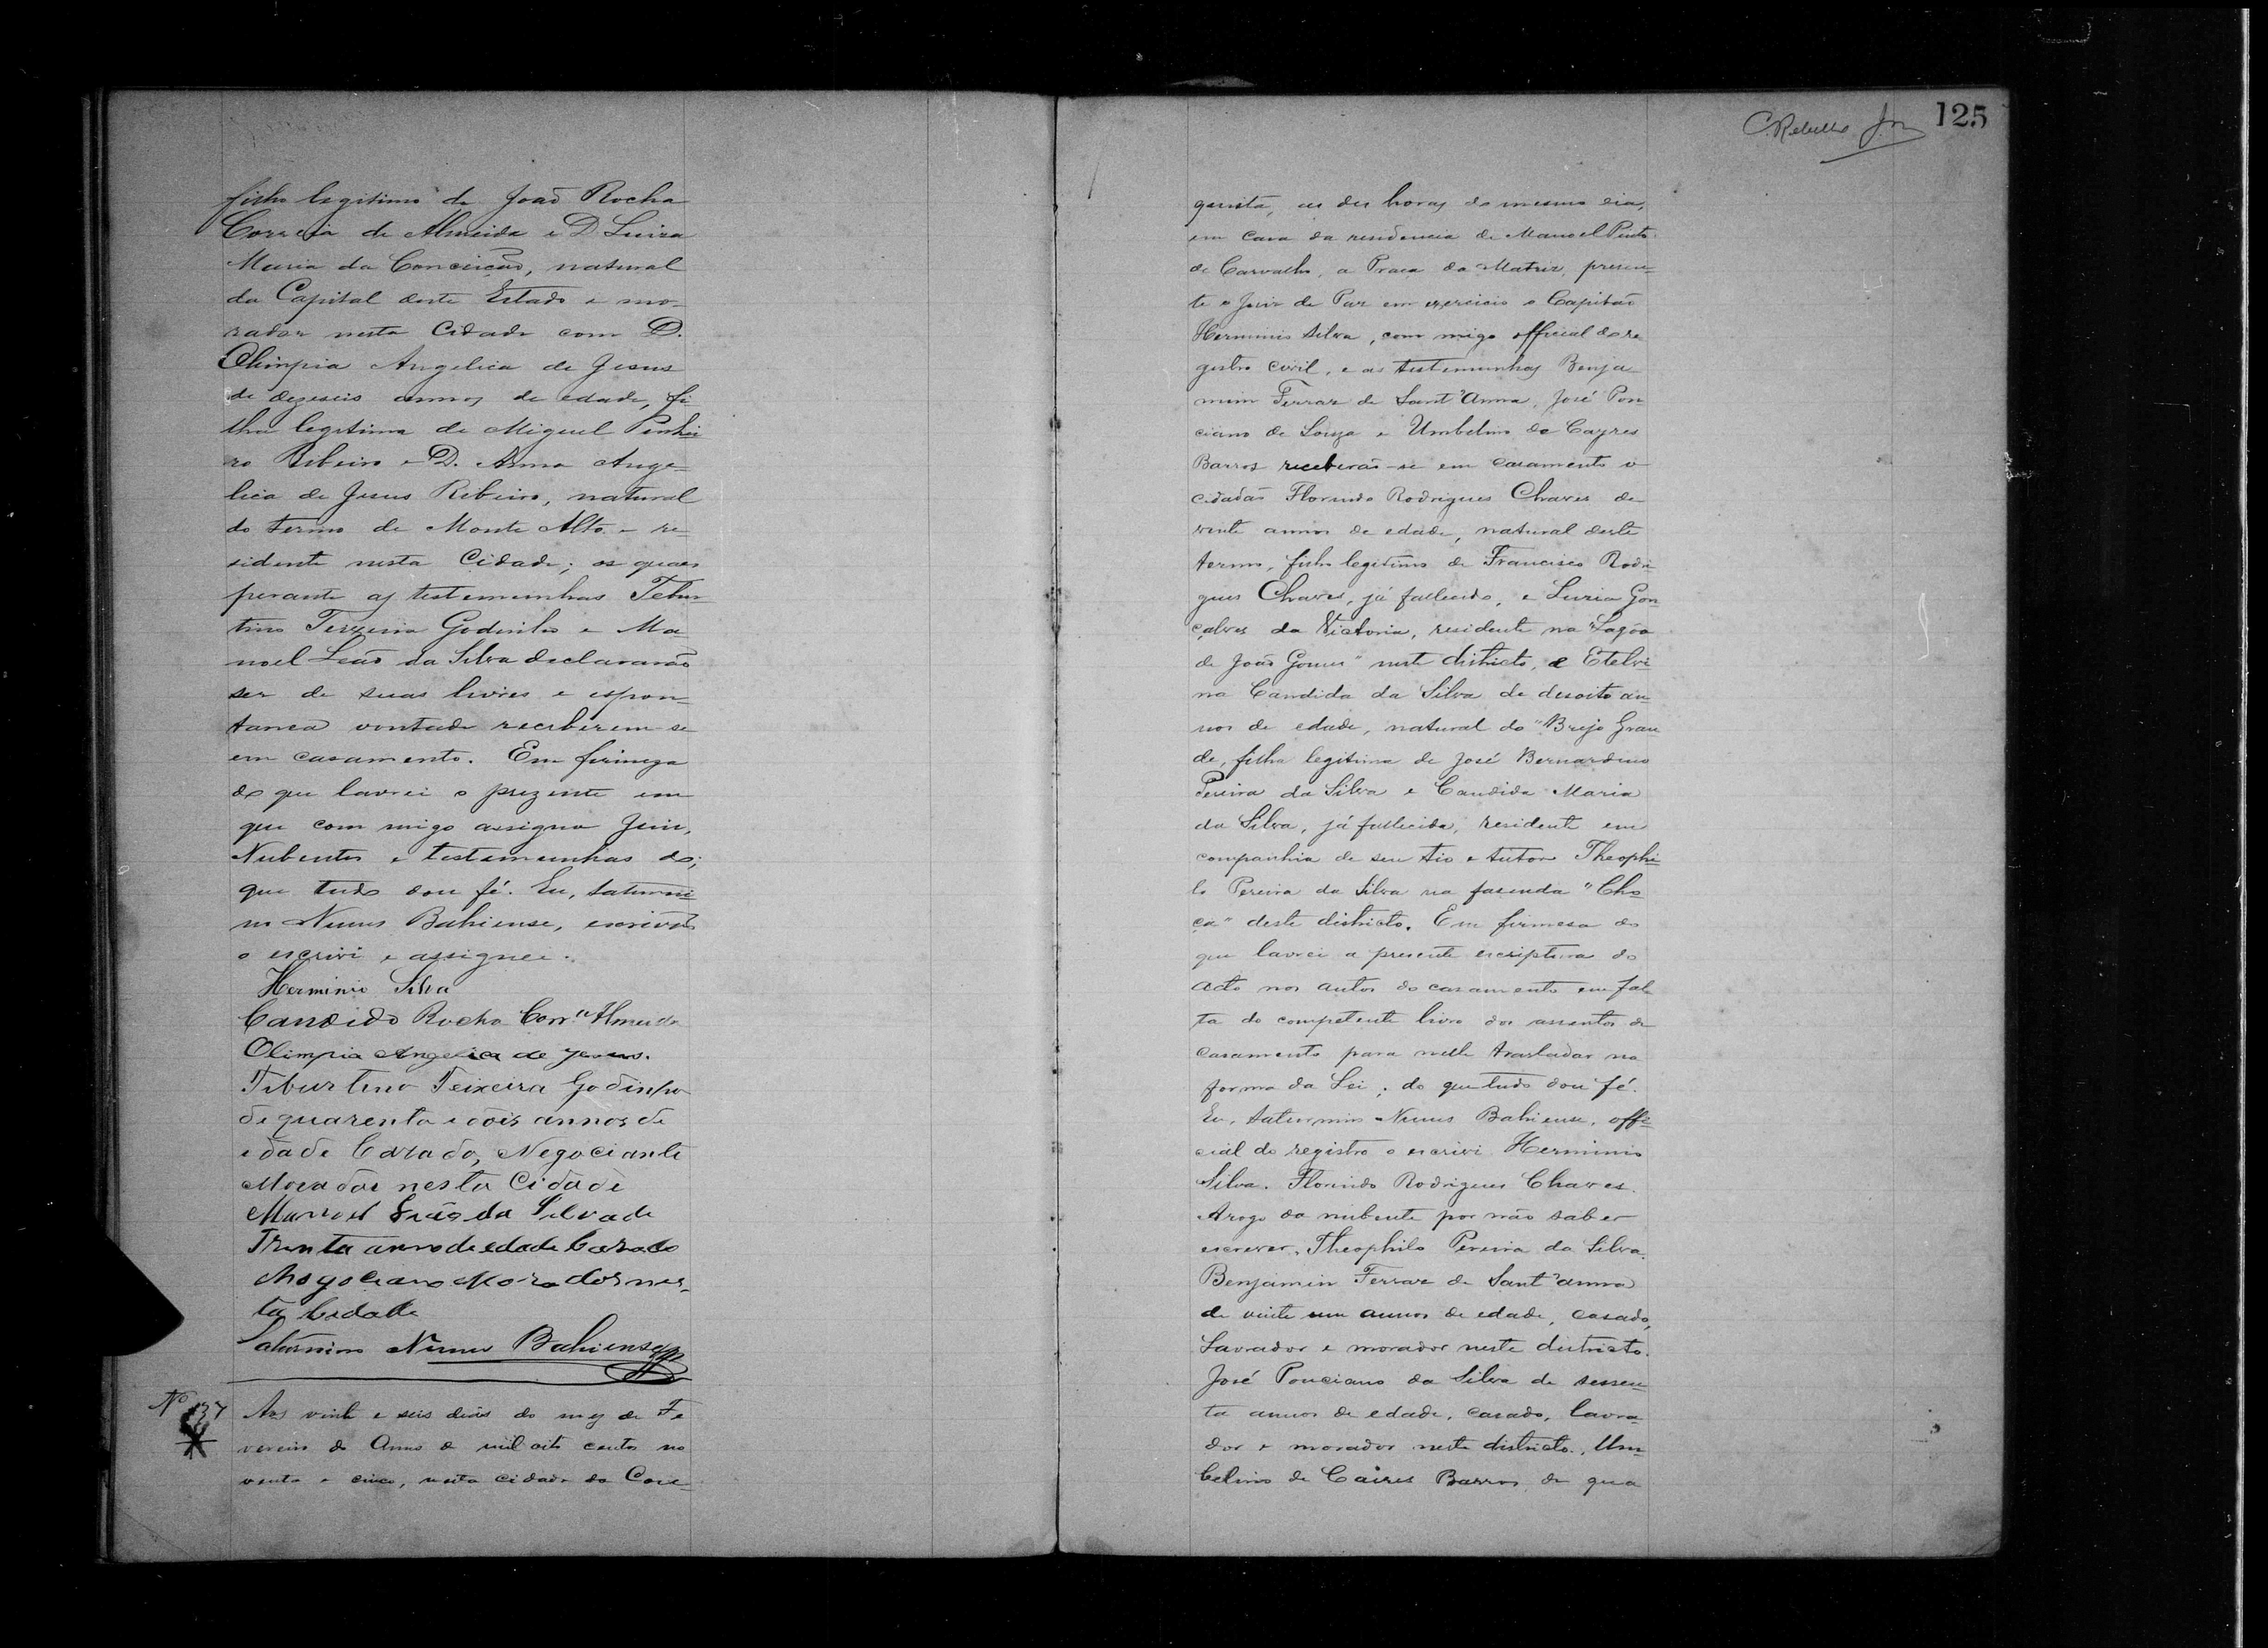 filho legitimo de João Rocha
Correia de Almeida e D. Luiza
Maria da Conceicão, natural
da Capital deste Estado e mo-
rador nesta Cidade com D.
Olimpia Angelica de Jesus
de dezeseis annos de edade, fi-
lha legitima de Miguel Pinhei
ro Ribeiro e D. Anna Ange-
lica de Jesus Ribeiro, natural
do termo de Monte Alto e re-
sidente nesta Cidade; os quaes
perante as testemunhas Tibur-
tino Teixeira Godinho e Ma-
noel Leão da Silva declararão
ser de suas livres e espon-
tanea vontade receberem-se
em casamento. Em firmeza
do que lavrei o prezente em
que com migo assigna Juiz,
Nubentes e testemunhas do;
que tudo dou fé. Eu, Saturni-
no Nunes Bahiense, escrivão
o escrivi e assignei.
Herminio Silva
Candido Rocha Corr.ª Almeida
Olimpia Angelica de Jesus.
Tiburtino Teixeira Godinho
de quarenta e dois annos de
edade Cazado, Negociante
Morador nesta Cidade
Manoel Leão da Silva de
Trinta anno de edade Cazado
Morador nes-
ta Cidade
Saturnino Nunes Bahiense
Nº 137
Aos vinte e seis dias do mez de Fe
vereiro do Anno de mil oito centos no
venta e cinco, nesta cidade da Con-
quista, as dez horas do mesmo dia,
em casa da residencia de Manoel Pinto
de Carvalho, a Praca da Matriz, presen-
te o Juiz de Paz em exercicio o Capitão
Herminio Silva, com migo official do re
gistro civil, e as testemunhas Benja
mim Ferraz de Sant'Anna, José Pon
ciano de Souza e Umbelino de Cayres
Barros receberão-se em casamento o
cidadão Florindo Rodrigues Chaves de
vinte annos de edade, natural deste
termo, filho legitimo de Francisco Rodri
gues Chaves, já fallecido, e Luzia Gon
çalves da Victoria, residente na "Lagôa
de João Gomes" neste districto, e Etelvi
na Candida da Silva de desoito an-
nos de edade, natural do "Brejo Gran
de, filha legitima de José Bernardino
Pereira da Silva e Candida Maria
da Silva, já fallecida, residente em
companhia de seu tio e tutor Theophi-
lo Pereira da Silva na fazenda "Cho
ça" deste districto. Em firmesa do
que lavrei a presente escriptura do
acto nos autos do casamento em fal
ta do competente livro dos assentos de
casamento para nelle trasladar na
forma da Lei; do que tudo dou fé.
Eu, Saturnino Nunes Bahiense, offi-
cial do registro o escrivi Herminio
Silva. Florindo Rodrigues Chaves.
Arogo da nubente por não saber
escrever, Theophilo Pereira da Silva.
Benjamin Ferraz de Sant'anna
de vinte um annos de edade, casado,
Lavrador e morador neste districto.
José Ponciano da Silva de sessen-
ta annos de edade, casado, lavra-
dor e morador neste districto. Um-
belino de Caires Barros de qua
125